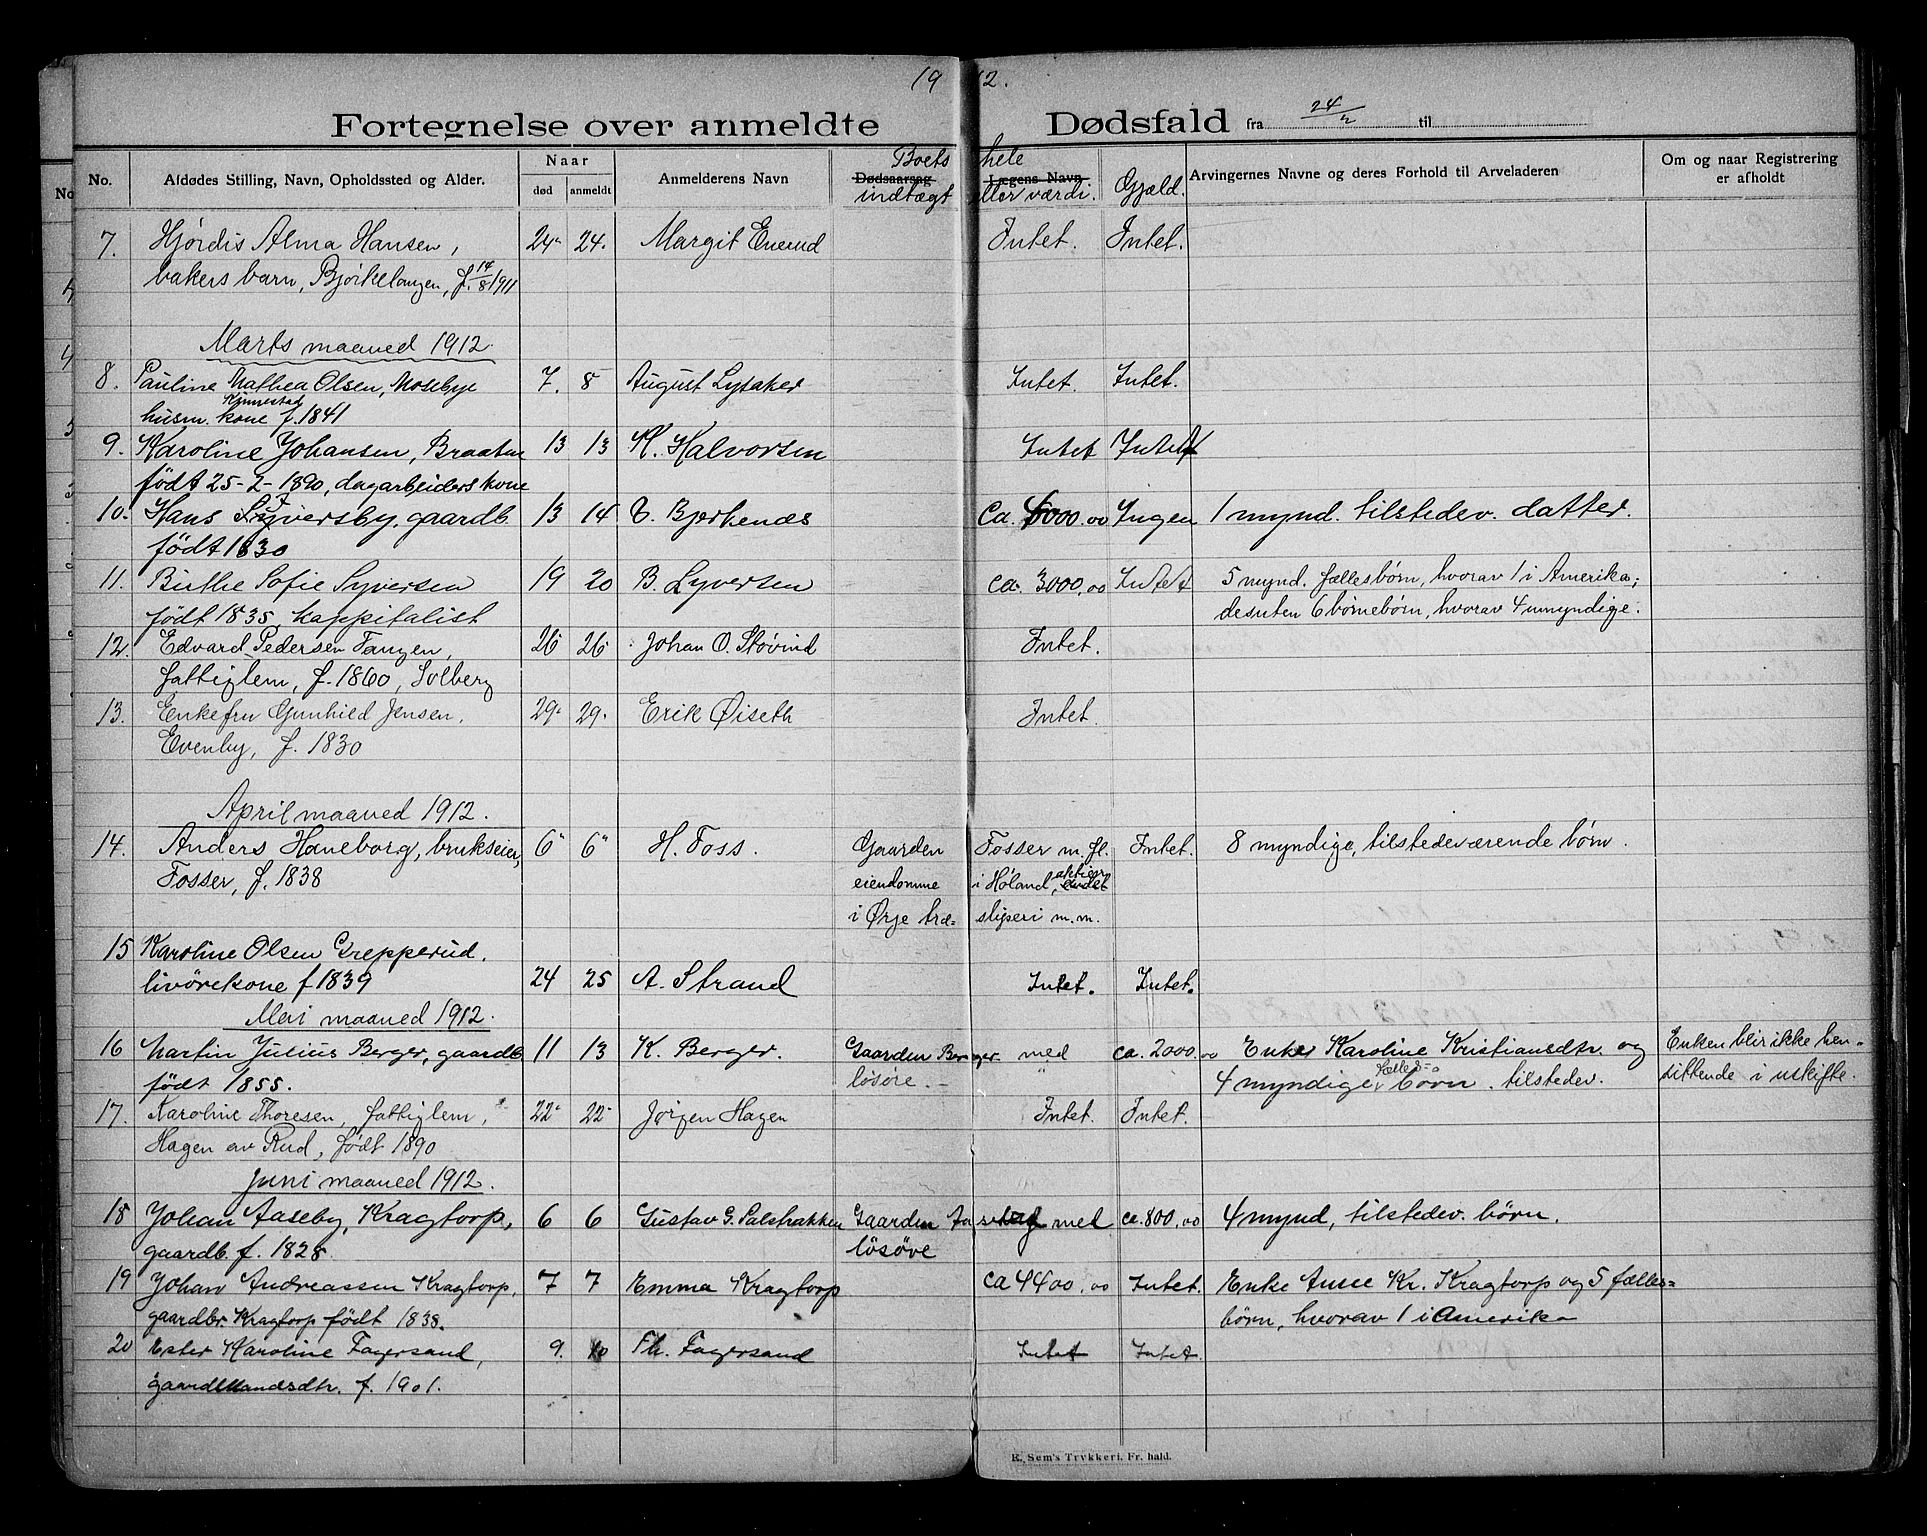 19 12.
Fortegnelse over anmeldte Dødsfald fra 24/2 til
No. Afdødes Stilling, Navn, Opholdssted og Alder. Naar død anmeldt Anmelderens Navn Dødsaarsag Lægens Navn Boets hele indtægt eller værdi. Gjæld. Arvingernes Navne og deres Forhold til Arveladeren Om og naar Registrering er afholdt
7. Hjørdis Alma Hansen, 24 24. Margit Enerud Intet. Intet.
bakers barn, Bjørkelangen, f. 14/8 1911
Marts maaned 1912.
8. Pauline Mathea Olsen, Mosebye 7. 8 August Lysaker Intet. Intet.
husm. kone f. 1841
9. Karoline Johansen, Braaten 13 13 K. Halvorsen Intet Intet
født 25-2-1890, dagarbeiders kone
10. Hans Syversby, gaardb. 13 14 Bjerkenes Ca. 6000.00 Ingen 1 mynd. tilstedev. datter.
født 1830
11. Birthe Sofie Syversen 19 20 B. Syversen ca. 3000,00 Intet 5 mynd. fællesbørn, hvorav 1 i Amerika;
født 1835, kappitalist desuten 6 børnebørn, hvorav 4 umyndige.
12. Edvard Pedersen Tangen, 26 26 Johan O. Støvind Intet.
fattiglem, f. 1860, Solberg
13. Enkefru Gunhild Jensen, 29 29. Erik Øiseth Intet.
Evenby, f. 1830
April maaned 1912.
14. Anders Haneborg, brukseier, 6 6 H. Foss. Gaarden Fosser m. fl. Intet. 8 myndige, tilstedeværende børn.
Fosser, f. 1838 eiendomme i Høland, aktier
i Ørje træsliperi m.m.
15 Karoline Olsen Grepperud.
livørekone f 1839 24 25 A. Strand Intet. Intet.
Mai maaned 1912.
16 Martin Julius Berger, gaardb. 11 13 K. Berger. Gaarden Berger med ca. 2000.00 Enke Karoline Kristiansdtr. og Enken blir ikke hen-
født 1855. løsøre. 4 myndige fælles- børn. tilstedev. sittende i uskifte.
17. Karoline Thoresen, fattiglem, 22 22 Jørgen Hagen Intet. Intet.
Hagen av Rud, født 1890
Juni maaned 1912.
18 Johan Aaseby, Kragtorp, 6 6 Gustav G. Salstrakken Gaarden Aaseby med ca. 800,00 4 mynd, tilstedev. børn.
gaardb. f. 1828. løsøre
19 Johan Andreassen Kragtorp, 7 7 Emma Kragtorp ca 4400,00 Intet. Enke Anne Kr. Kragtorp og 5 fælles-
gaardbr. Kragtorp født 1838. børn, hvorav 1 i Amerika
20 Ester Karoline Fagersand, 9. 10 Th. Fagersand Intet Intet.
gaardmandsdtr. f. 1901.
E. Sem's Trykkeri, Fr. hald.